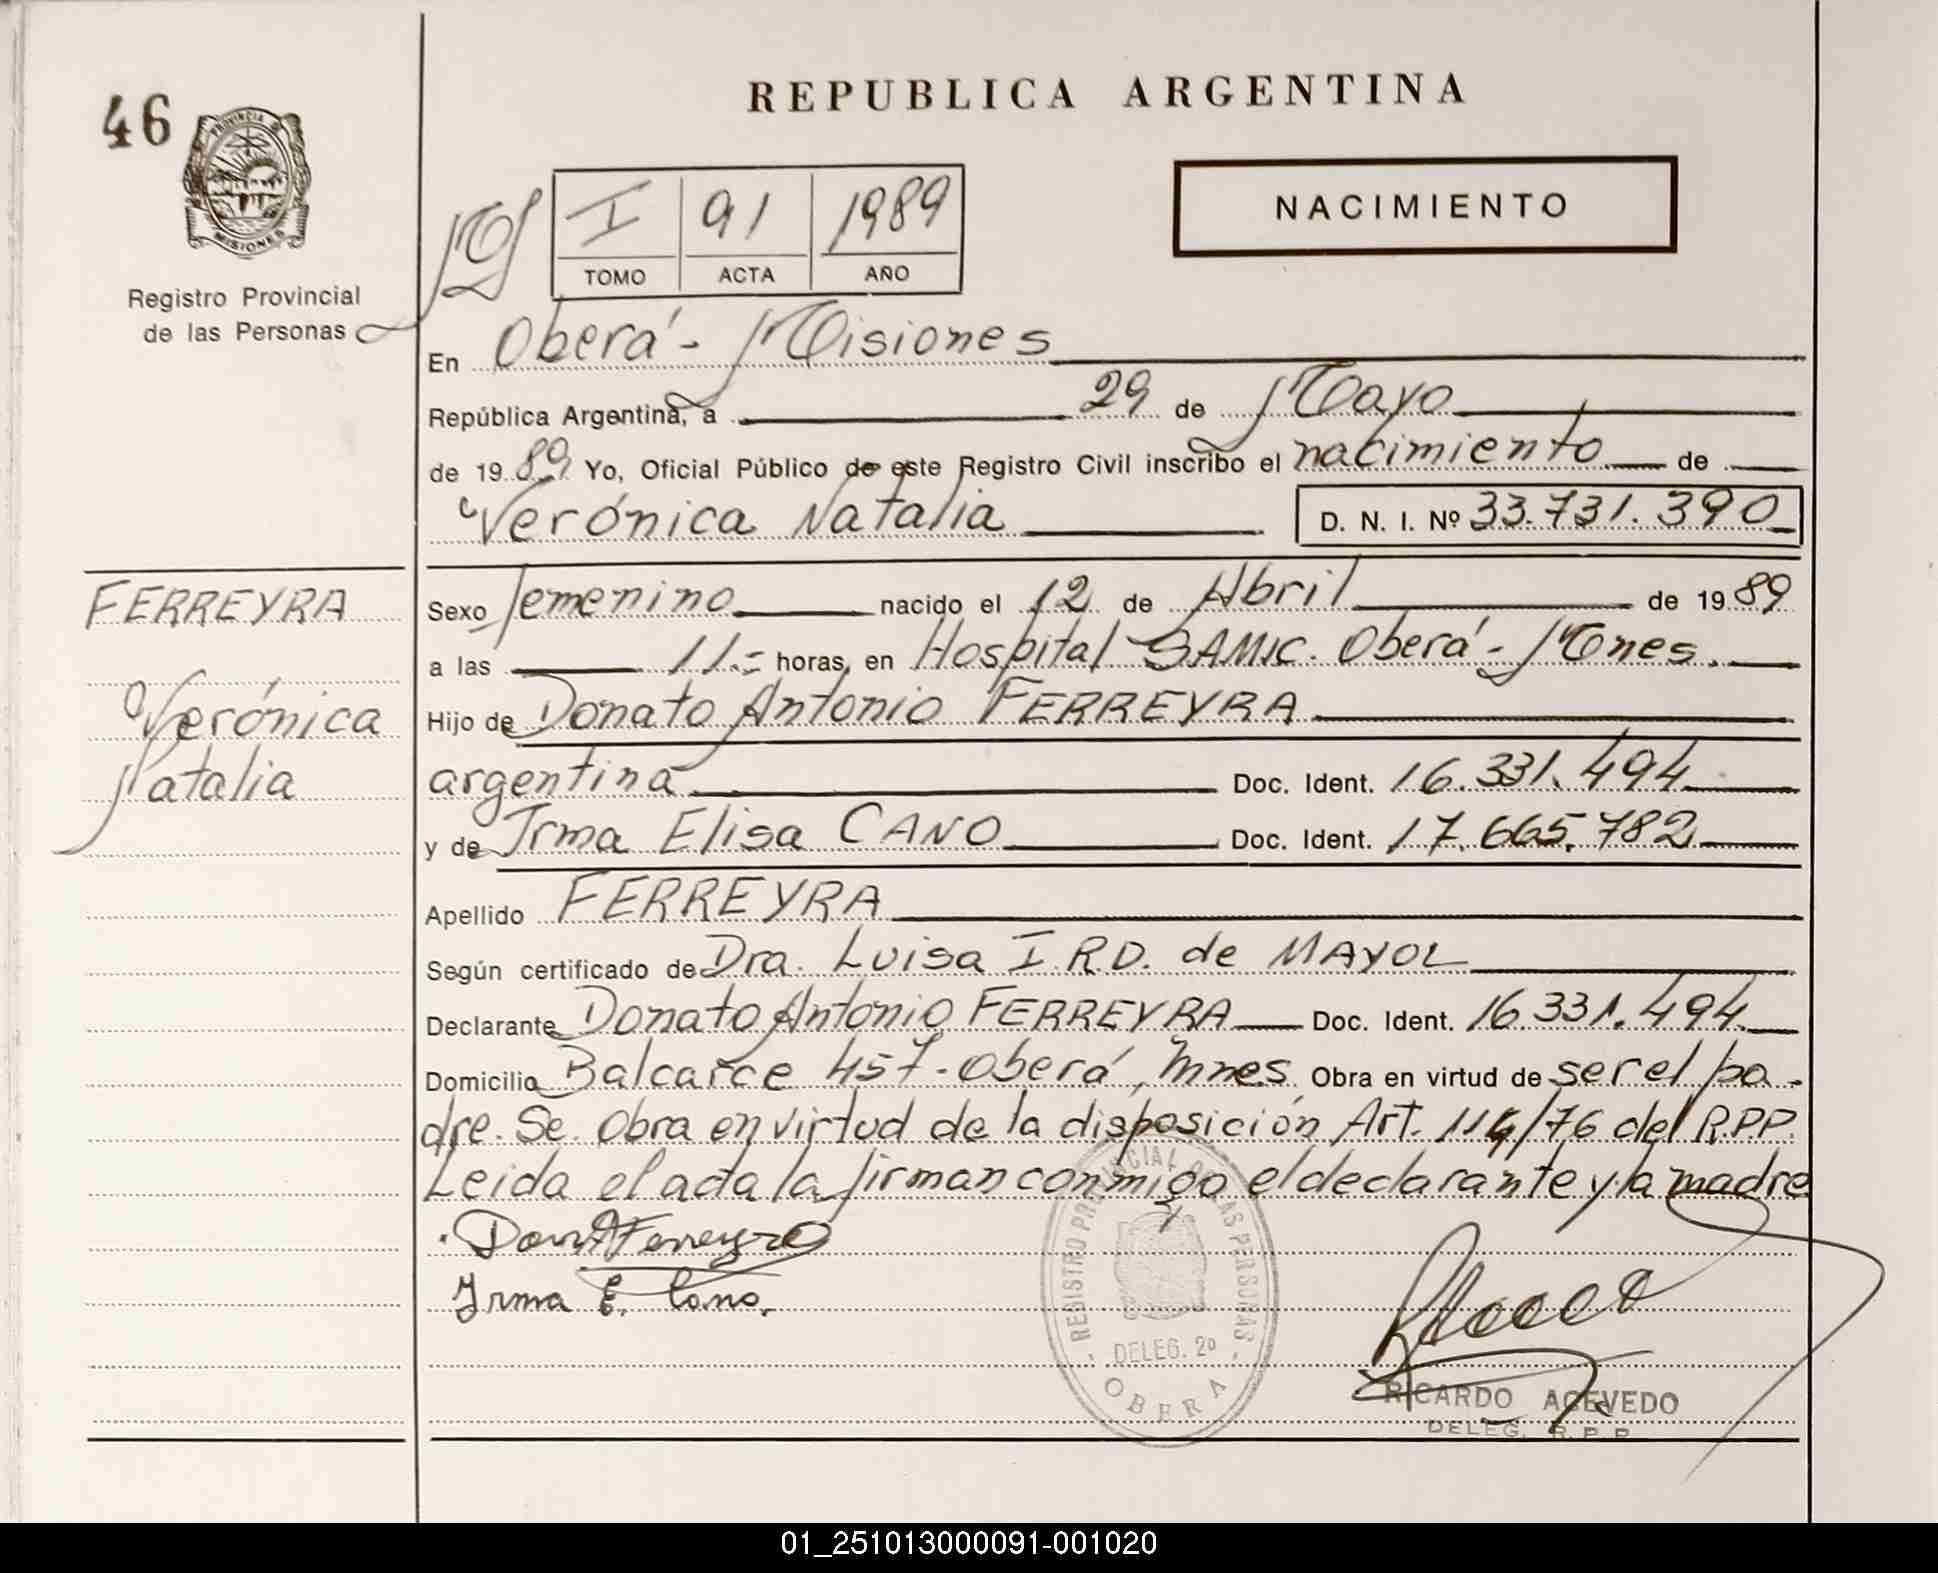 REPUBLICA ARGENTINA
46
PROVINCIA DE
MISIONES
Registro Provincial
de las Personas
I 91 1989
TOMO ACTA AÑO
NACIMIENTO
En Oberá - Misiones
República Argentina, a 29 de Mayo
de 1989 Yo, Oficial Público de este Registro Civil inscribo el nacimiento de
Verónica Natalia D. N. I. Nº 33.731.390
FERREYRA
Verónica
Natalia
Sexo femenino nacido el 12 de Abril de 1989
a las 11.= horas, en Hospital SAMIC. Oberá - Mones.
Hijo de Donato Antonio FERREYRA
argentina Doc. Ident. 16.331.494
y de Irma Elisa CANO Doc. Ident. 17.665.782
Apellido FERREYRA
Según certificado de Dra. Luisa I.R.D. de MAYOL
Declarante Donato Antonio FERREYRA Doc. Ident. 16.331.494
Domicilio Balcarce 457 - Oberá, Mnes Obra en virtud de ser el pa-
dre. Se obra en virtud de la disposición Art. 114/76 del R.P.P.
Leida el acta la firman conmigo el declarante y la madre
Irma E. Cano.
- REGISTRO PROVINCIAL DE LAS PERSONAS -
DELEG. 2º
OBERA
RICARDO ACEVEDO
DELEG. R.P.P
01_251013000091-001020